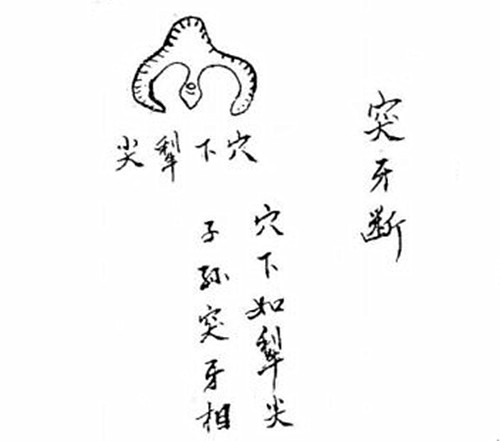 突牙断
穴下犁尖
穴下如犁尖
子孫突牙相